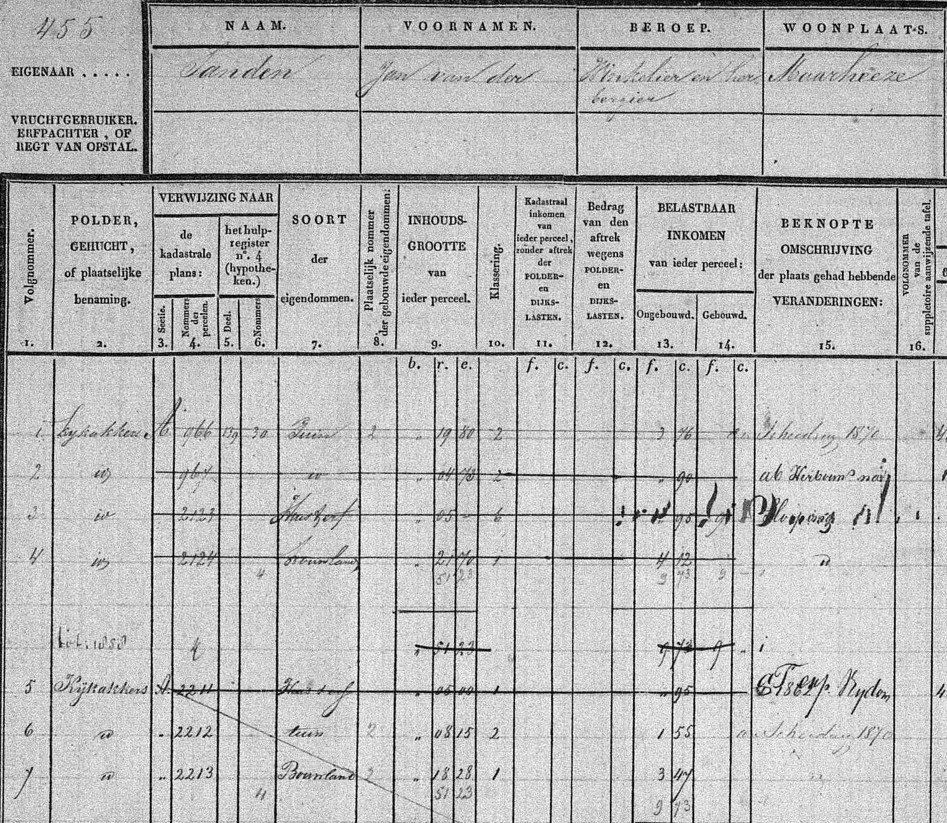 455
NAAM. VOORNAMEN. BEROEP. WOONPLAATS.
EIGENAAR . . . . . Sanden Jan van der Winkelier en her Maarheeze
bergier
VRUCHTGEBRUIKER.
ERFPACHTER, OF
REGT VAN OPSTAL.
Volgnommer.
1.
POLDER,
GEHUCHT,
of plaatselijke
benaming.
2.
VERWIJZING NAAR
de
kadastrale
plans:
Sectie.
3.
Nommers
der
perceelen.
4.
het hulp-
register
n°. 4
(hypothe-
ken.)
Deel.
5.
Nommers
6.
SOORT
der
eigendommen.
7.
Plaatselijk nommer
der gebouwde eigendommen:
8.
INHOUDS-
GROOTTE
van
ieder perceel.
9.
Klassering.
10.
Kadastraal
inkomen
van
ieder perceel,
zonder aftrek
der
POLDER-
en
DIJKS-
LASTEN.
11.
Bedrag
van den
aftrek
wegens
POLDER-
en
DIJKS-
LASTEN.
12.
BELASTBAAR
INKOMEN
van ieder perceel:
Ongebouwd.
13.
Gebouwd.
14.
BEKNOPTE
OMSCHRIJVING
der plaats gehad hebbende
VERANDERINGEN:
15.
VOLGNOMMER
van de
suppletoire aanwijzende tafel.
16.
b. r. e. f. c. f. c. f. c. f. c.
1 A 966 139 30 Tuin 2 " 19 80 2 3 76 Scheiding 1870
2 id 967 id " 04 73 2 " 90
3 id 2123 Huis & erf " 05 - 6 " 95 9 Slooping
4 id 2124 Bouwland " 21 70 1 4 12 "
4 51 23 9 73 9
" 51 23 9 73 9 "
5 Kijkakkers A 2211 " 05 00 1 " 95
6 id " 2212 tuin 2 " 08 15 2 1 55 Scheiding 1870
7 id " 2213 Bouwland 2 " 18 28 1 3 47 "
4 51 23
9 73